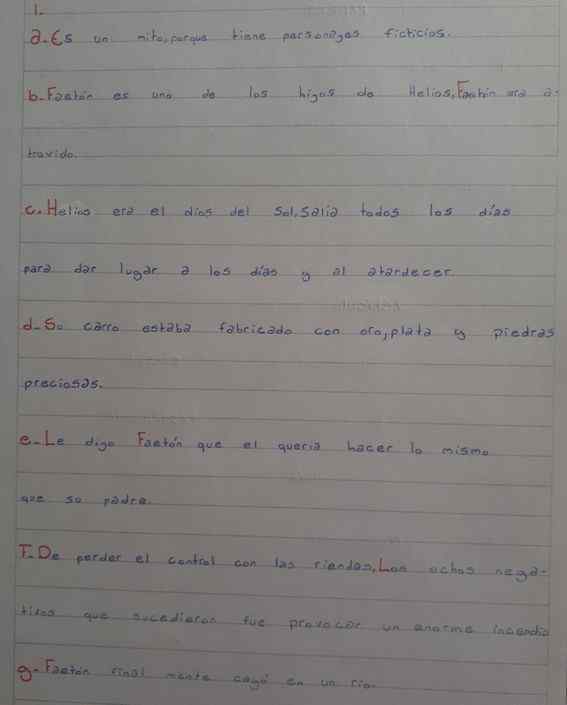 1.
a.-Es un mito, porque tiene personages ficticios.
b.-Faetón es uno de los higos de Helios, Faetón era a-
travido.
c.-Helios era el dios del Sol, Salia todos los días
para dar lugar a los días y al atardecer.
d.-Su carro estaba fabricado con oro, plata y piedras
preciosas.
e.-Le digo Faetón que el queria hacer lo mismo
que su padre.
F.-De perder el control con las riendas, Los echos nega-
tivos que sucedieron fue provocar un enorme incendio
g.-Faetón final mente cayó en un rio.